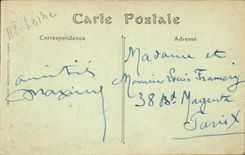 Hte Loire
Carte Postale
Correspondance
Adresse
amitiés
Maxime
Madame et
Monsieur Louis Framery
38 Bd Magenta
Paris X